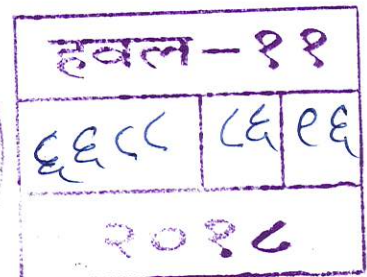 हवल - ११
६६८८ ८६ ९६
२०१८